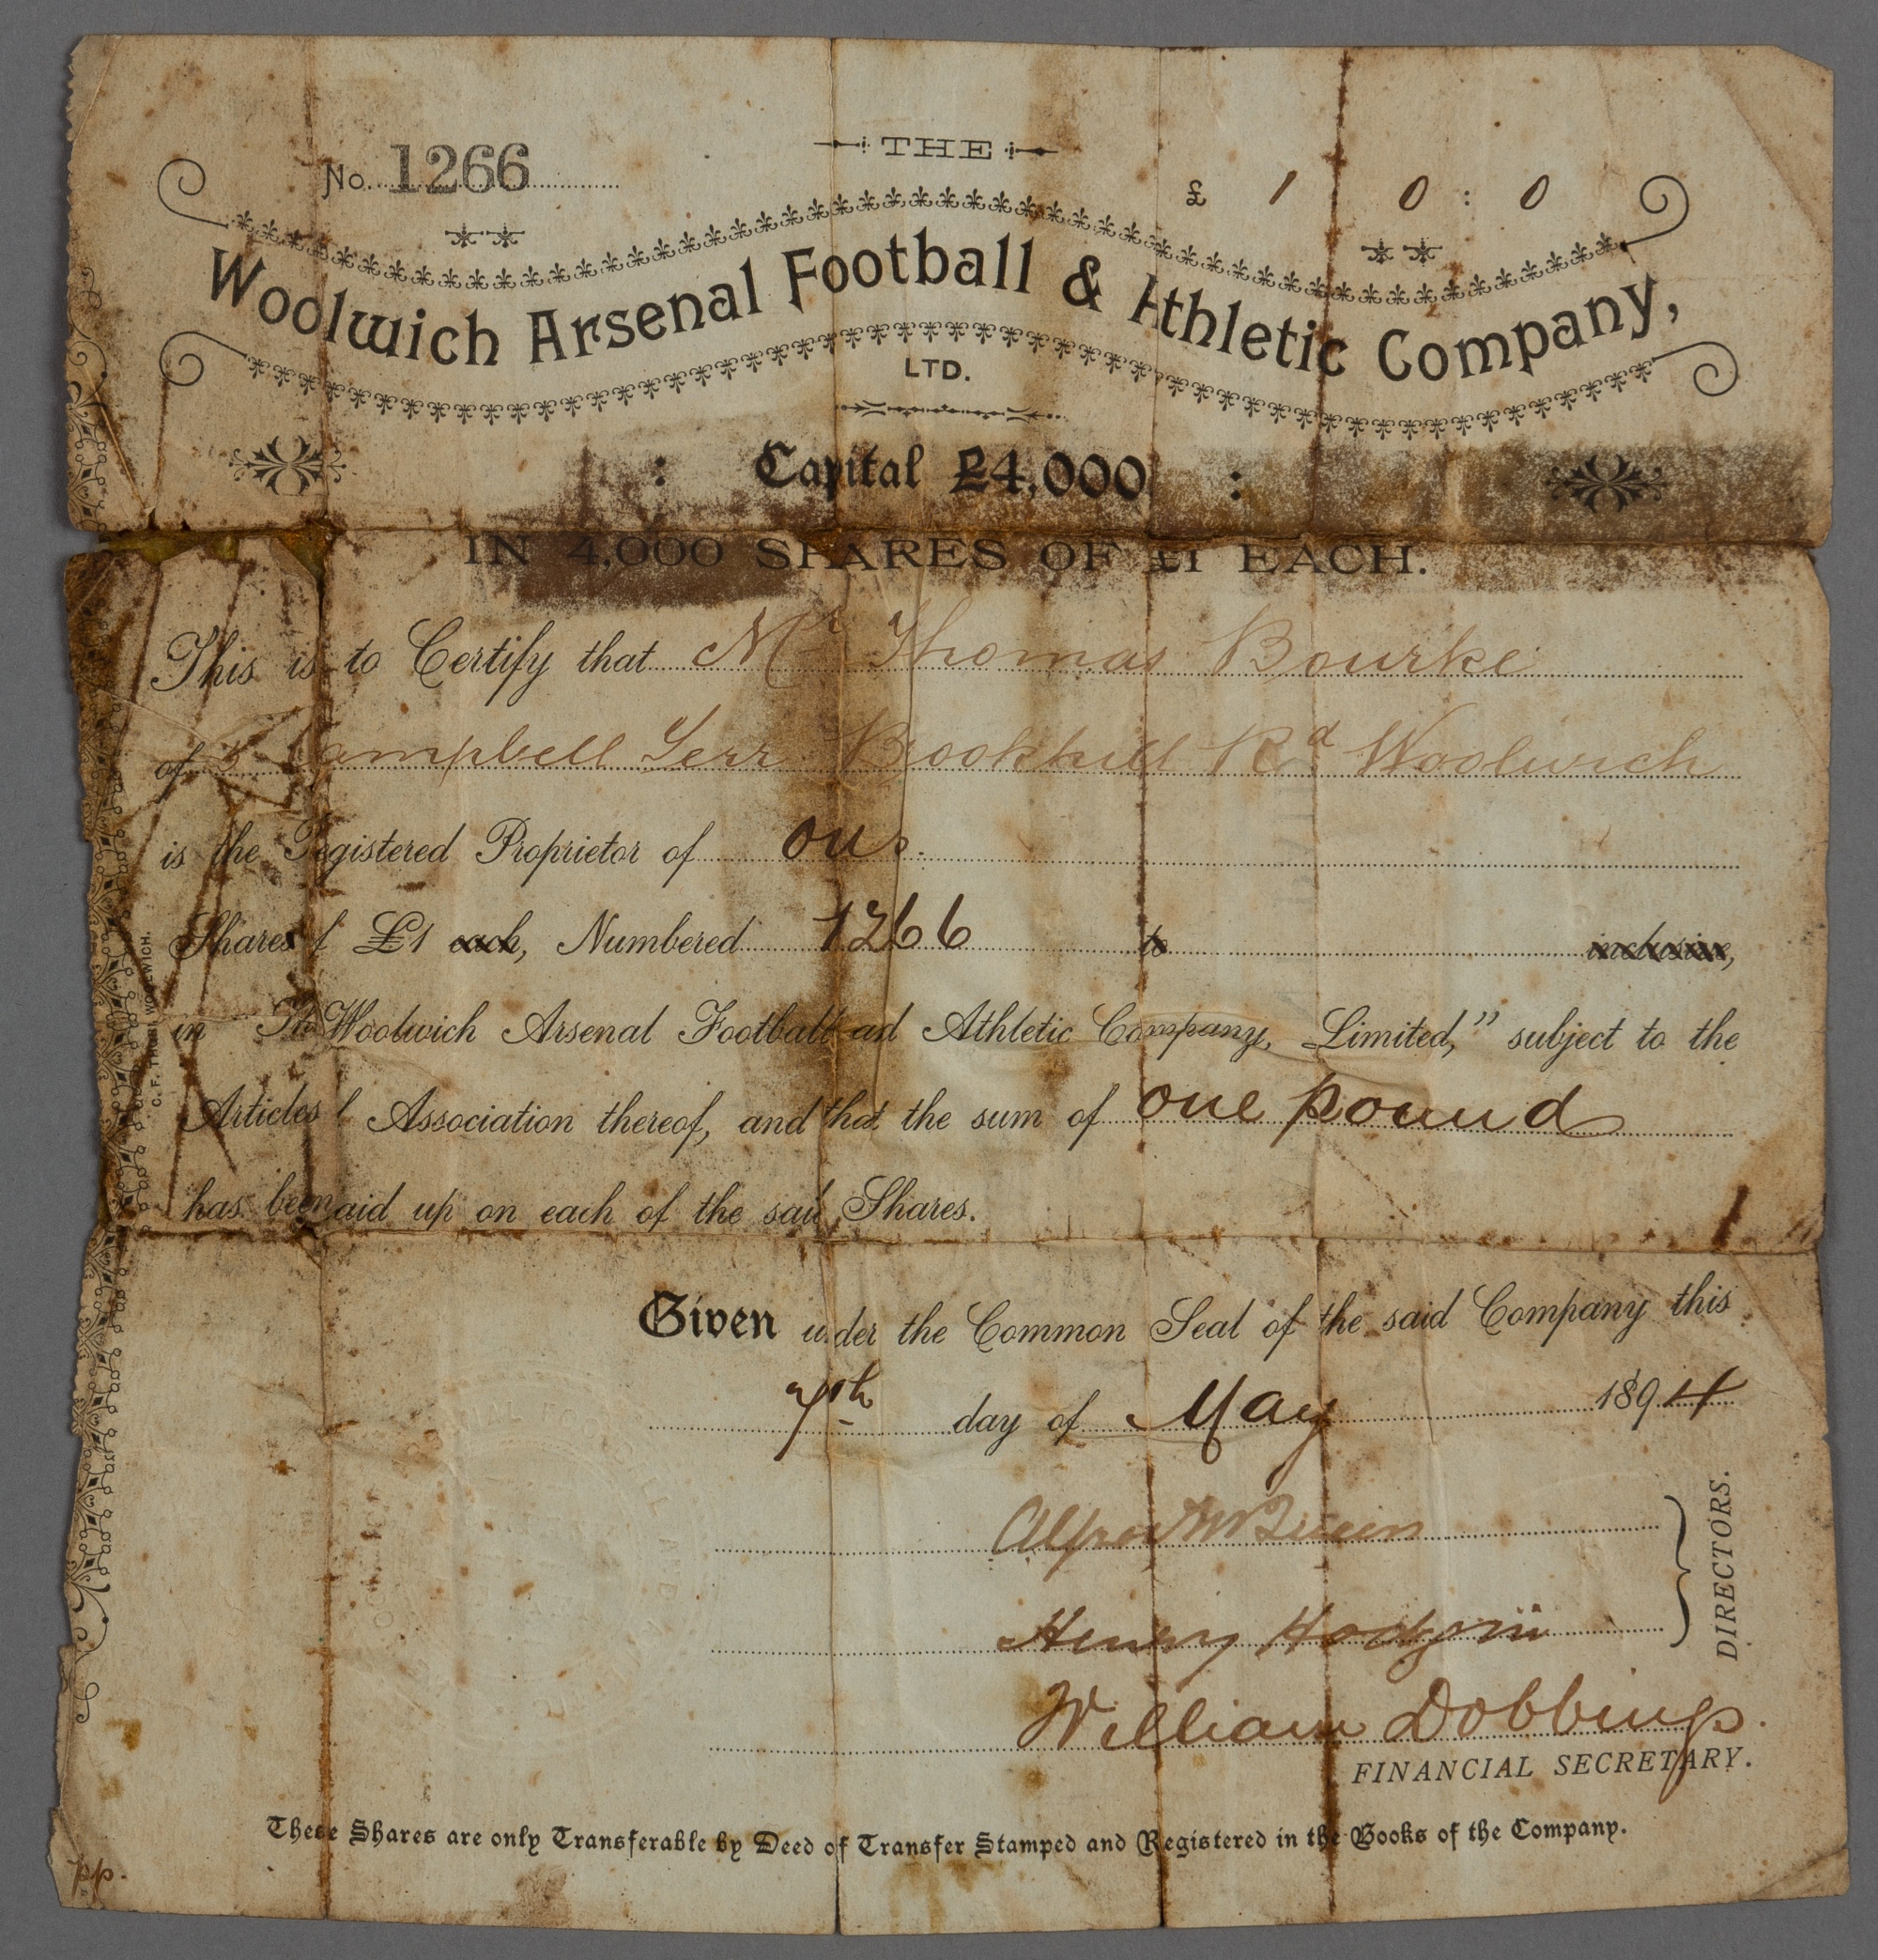 No. 1266
THE
£ 1 0 : 0
Woolwich Arsenal Football & Athletic Company,
LTD.
: Capital £4,000 :
IN 4,000 SHARES OF £1 EACH.
This is to Certify that Mr Thomas Bourke
of Campbell Terr Brookhill Rd Woolwich
is the Registered Proprietor of one
Shares of £1 each, Numbered 1266 to inclusive,
in The Woolwich Arsenal Football and Athletic Company, Limited," subject to the
Articles of Association thereof, and that the sum of one pound
has been paid up on each of the said Shares.
Given under the Common Seal of the said Company this
7th day of May 1894
Henry
William Dobbings
DIRECTORS.
FINANCIAL SECRETARY.
These Shares are only Transferable by Deed of Transfer Stamped and Registered in the Books of the Company.
pp.
WOOLWICH.